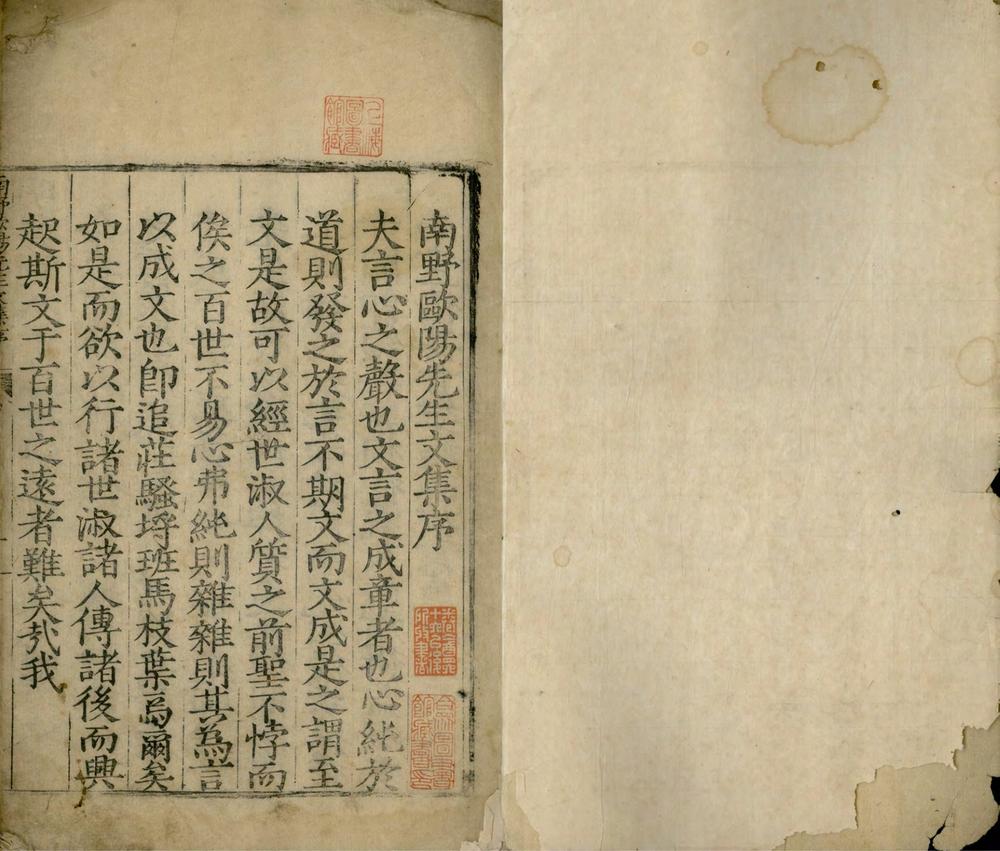 南野歐陽先生文集序
夫言心之聲也文言之成章者也心純於
道則發之於言不期文而文成是之謂至
文是故可以經世淑人質之前聖不悖而
俟之百世不易心弗純則雜雜則其為言
以成文也卽追莊騷埒班馬枝葉焉爾矣
如是而欲以行諸世淑諸人傳諸後而興
起斯文于百世之遠者難矣哉我